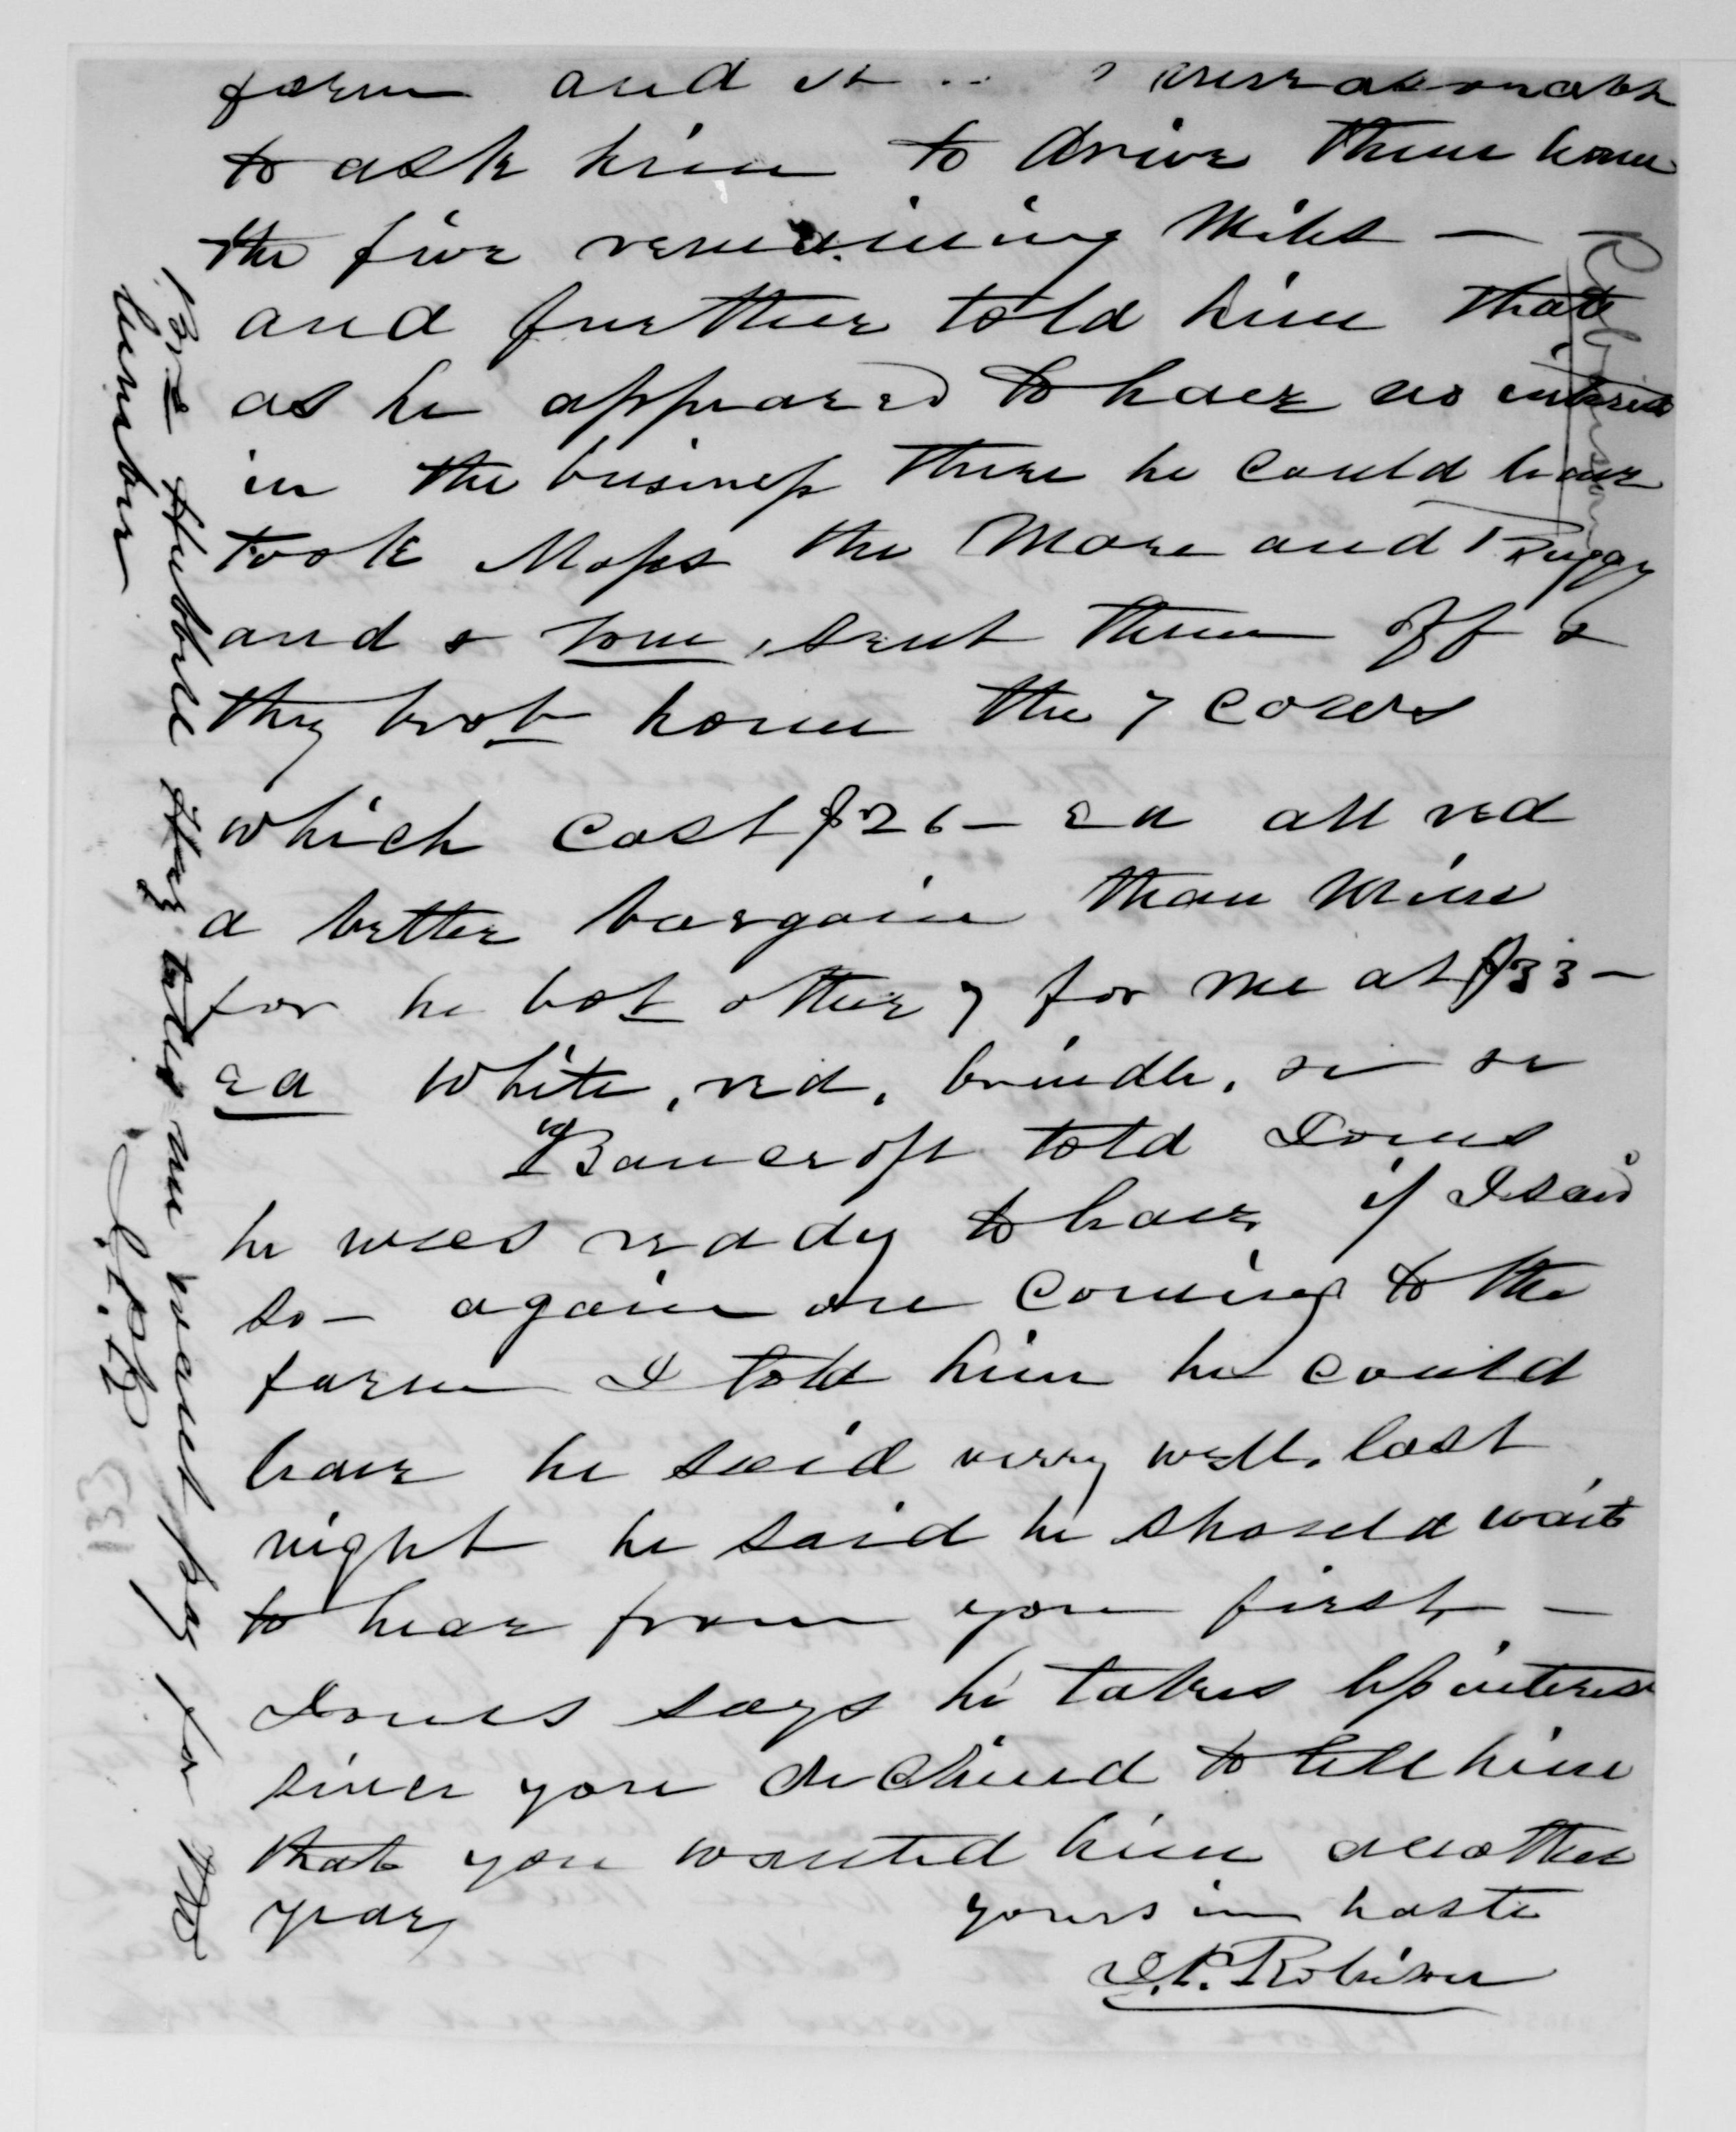 farm and it unreasonable
to ask him to drive them home
the five remaining Miles —
and further told him that
as he appeared to have no interest
in the business there he could leave
took Moses the Mare and Buggy
and sent them off &
they bro't home the 7 cows
which cost $26 — ea all red
a better bargain than mine
for he bo't other 7 for me at $33 —
ea White, red, brindle,
Bancroft told Jones
he was ready to leave if I said
so — again on coming to the
farm I told him he could
leave he said very well. last
night he said he should wait
to hear from you first —
Jones says he takes less interest
since you declined to tell him
that you wanted him another
year, yours in haste
J. P. Robison
Bro Hubbell they tell me wants pay for the
lumber
J. P. R.
133
Robinson